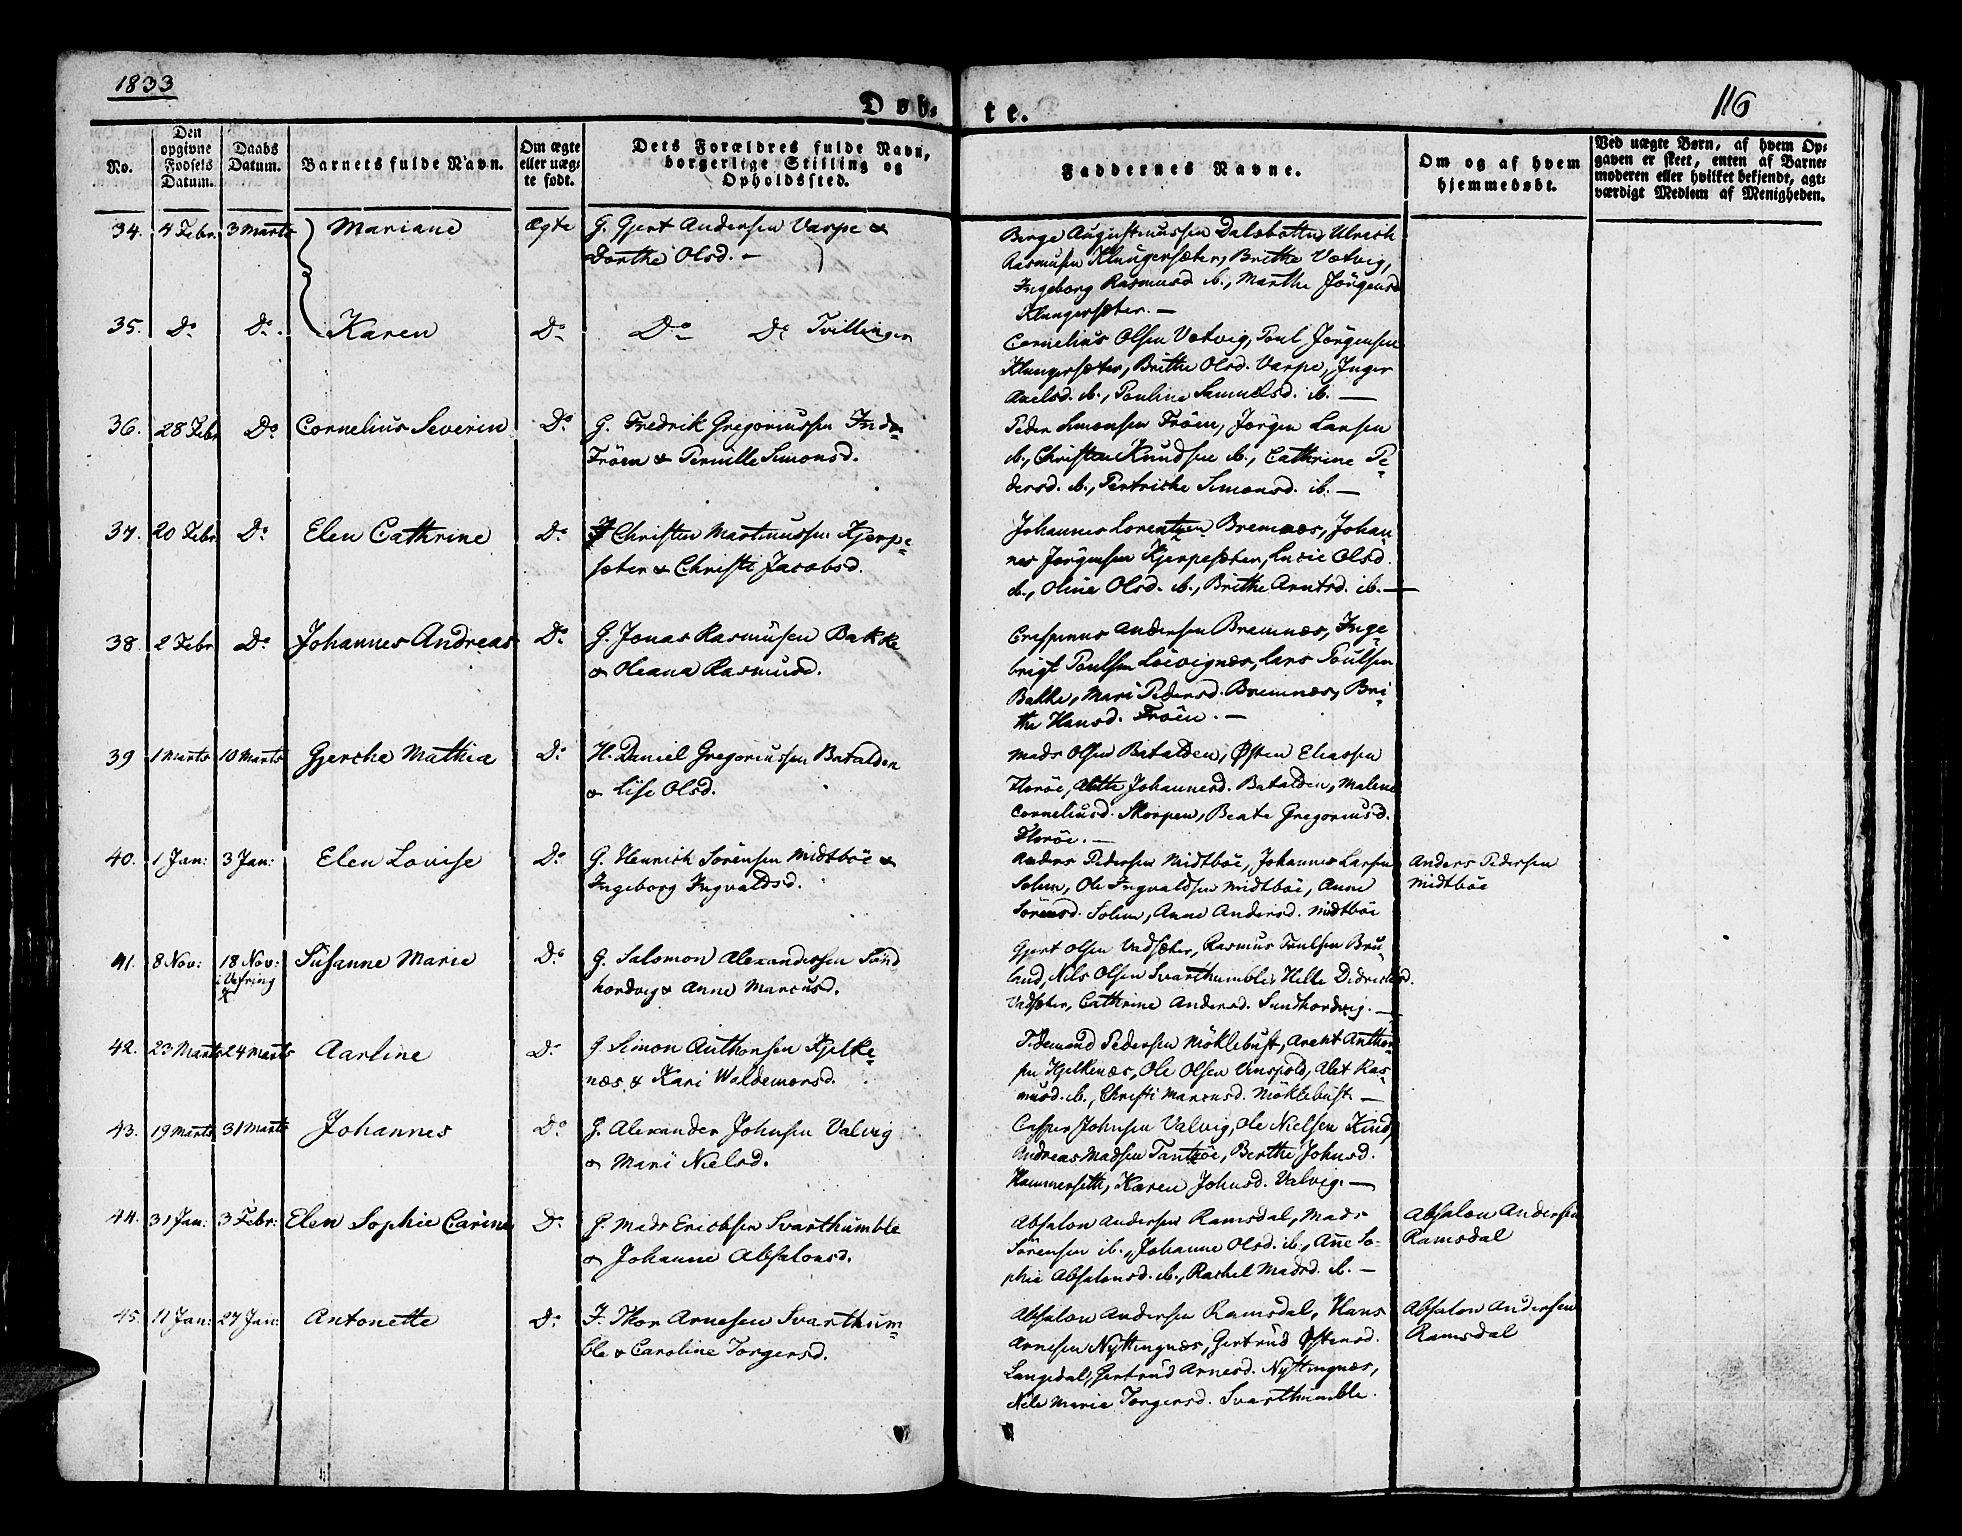 1833
116
Døb-te.
No.
Den opgivne Fødsels Datum.
Daabs Datum.
Barnets fulde Navn.
Om ægte eller uægte født.
Dets Forældres fulde Navn, borgerlige Stilling og Opholdssted.
Faddernes Navne.
Om og af hvem hjemmedøbt.
Ved uægte Børn, af hvem Opgaven er skeet, enten af Barnemoderen eller hvilket bekjendt, agtværdigt Medlem af Menigheden.
34. 4 Febr. 3 Marts Mariane Ægte G. Gjert Andersen Varpe &
Dorthe Olsd. -
Berge Augustinussen Dalsbotten, Ulrich
Rasmusen Klungersæter, Brithe Vetvig,
Ingeborg Rasmusd ib., Marthe Jörgensd
Klungersæter. -
35. Do Do. Karen Do Do Do Tvillinger
Cornelius Olsen Vetvig, Poul Jörgensen
Klungersæter, Brithe Olsd. Varpe, Inger
Axelsd. ib., Pauline Samuelsd. ib. -
36. 28 Febr Do Cornelius Severin Do G. Fredrik Gregoriussen Indre-
Fröen & Pernille Simonsd.
Peder Simonsen Fröen, Jörgen Larsen
ib., Christen Knudsen ib., Cathrine Pe-
dersd. ib., Petriche Simonsd. ib. -
37. 20 Febr Do Elen Cathrine Do Christen Martinussen Kjerpe-
sæter & Christi Jacobsd.
Johannes Lorentzen Bremnæs, Johan-
nes Jörgensen Kjerpesæter, Lucie Olsd.
ib., Oline Olsd. ib., Brithe Arntsd. ib. -
38. 2 Febr Do Johannes Andreas Do G. Jonas Rasmusen Bakke
& Oleana Rasmusd.
Crispinus Andersen Bremnæs, Inge-
brigt Poulsen Löivignæs, Lars Poulsen
Bakke, Mari Pedersd. Bremnæs, Bri-
the Hansd. Fröen. -
39 1 Marts 10 Marts Gjerche Mathea Do H. Daniel Gregoriussen Batalden
& Lise Olsd.
Mads Olsen Batalden, Østen Eliassen
Floröe, Alette Johannesd. Batalden, Malene
Corneliusd. Skorpen, Beate Gregoriusd.
Floröe. -
40. 1 Jan: 3 Jan: Elen Lovise Do G. Henrich Sörensen Midtböe &
Ingeborg Ingvaldsd.
Anders Pedersen Midtböe, Johannes Larsen
Solem, Ole Ingvaldsen Midtböe, Anne
Sörensd. Solem, Anne Andersd. Midtböe
Anders Pedersen
Midtböe
41. 8 Nov: 18 Nov: Susanne Marie Do G. Salomon Alexandersen Sund
i Vefring
hordvig & Anne Marcusd.
Gjert Olsen Vadsæter, Rasmus Poulsen Bru-
land, Nils Olsen Svarthumble, Helle Didrichsd.
Vadsæter, Cathrine Andersd. Sundhordvig. -
42. 23 Marts 24 Marts Aarline Do G. Simon Anthonsen Hjelke-
næs & Kari Waldemarsd.
Pedersen Möklebust, Arent Anthon-
sen Hjelkenæs, Ole Olsen Vinspold, Alet Ras-
musd. ib., Christi Marcusd. Möklebust. -
43. 19 Marts 31 Marts Johannes Do G. Alexander Johnsen Valvig
& Mari Nielsd.
Casper Johnsen Valvig, Ole Nielsen Kind,
Andreas Madsen Tanköe, Berthe Johnsd.
Hammerseth, Karen Johnsd. Valvig. -
44. 31 Jan: 3 Febr: Elen Sophie Carine Do G. Mads Ericksen Svarthumble
& Johanne Absalonsd.
Absalon Andersen Ramsdal, Mads
Sörensen ib., Johanne Olsd. ib., Ane So-
phie Absalonsd. ib., Rachel Madsd. ib. -
Absalon Andersen
Ramsdal
45. 11 Jan: 27 Jan: Antonette Do F. Thor Arnesen Svarthum-
ble & Caroline Torgersd.
Absalon Andersen Ramsdal, Hans
Arnesen Nyttingnæs, Gertrud Østensd.
Langedal, Gertrud Arnesd. Nyttingnæs,
Nele Marie Torgersd. Svarthumble.
Absalon Andersen
Ramsdal